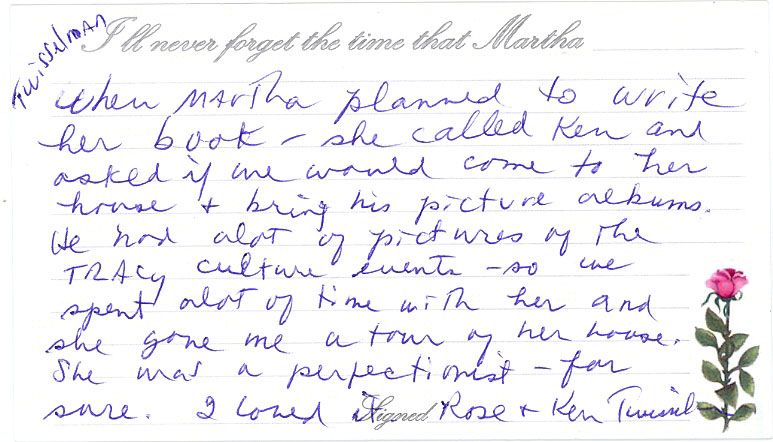 Twisselman
I'll never forget the time that Martha
When Martha planned to write
her book – she called Ken and
asked if we would come to her
house + bring his picture albums.
He had alot of pictures of the
TRACY culture events – so we
spent alot of time with her and
she gave me a tour of her house.
She was a perfectionist – for
sure. I loved it Signed Rose + Ken Twissel